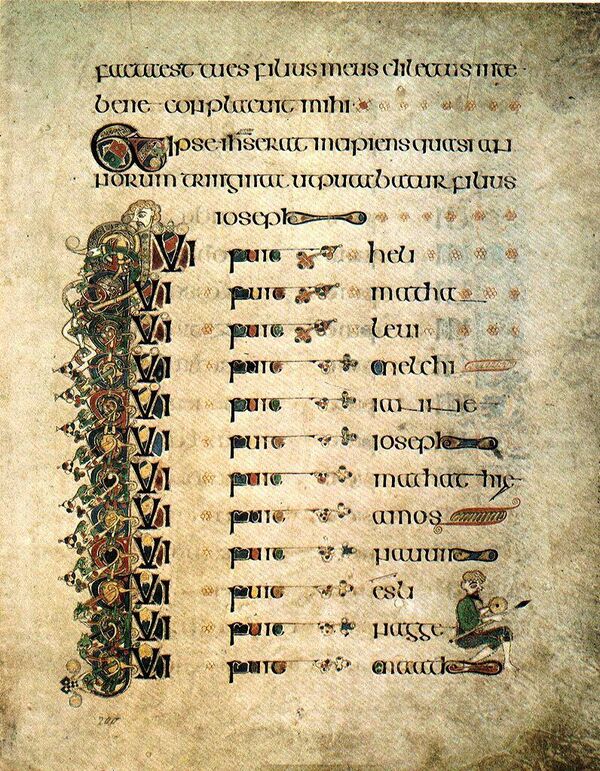 factaest tues filius meus dilectus inte
bene conplacuit mihi
Et ipse ihs erat incipiens quasi an
norum triginta utputabatur filius
ioseph
QVI fuit heli
QVI fuit matha
QVI fuit leui
QVI fuit melchi
QVI fuit iannae
QVI fuit ioseph
QVI fuit mathathie
QVI fuit amos
QVI fuit nauum
QVI fuit esli
QVI fuit nagge
QVI fuit maath
200